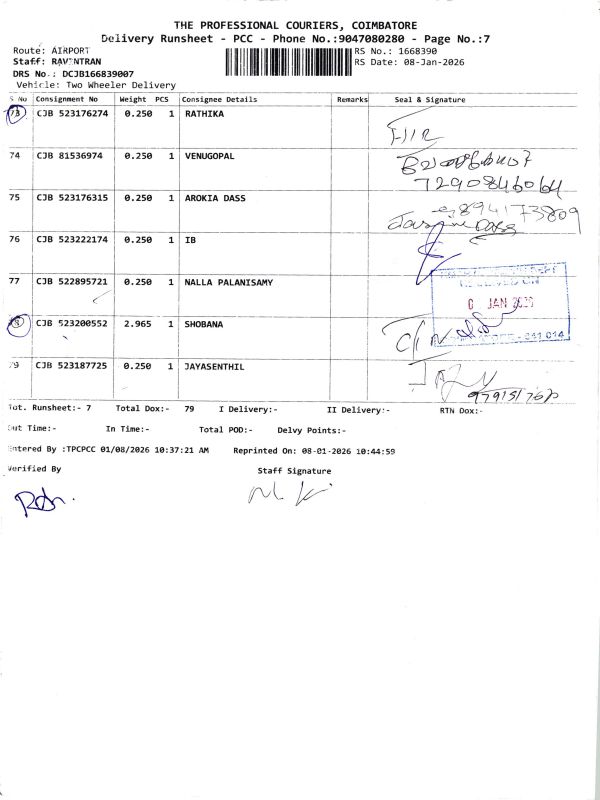 THE PROFESSIONAL COURIERS, COIMBATORE
Delivery Runsheet - PCC - Phone No.:9047080280 - Page No.:7
Route: AIRPORT
RS No.: 1668390
Staff: RAVINTRAN
RS Date: 08-Jan-2026
DRS No.: DCJB166839007
Vehicle: Two Wheeler Delivery
S No Consignment No Weight PCS Consignee Details Remarks Seal & Signature
73 CJB 523176274 0.250 1 RATHIKA
74 CJB 81536974 0.250 1 VENUGOPAL
7290846064
75 CJB 523176315 0.250 1 AROKIA DASS
894173809
76 CJB 523222174 0.250 1 IB
77 CJB 522895721 0.250 1 NALLA PALANISAMY
RECEIVED ON
JAN
78 CJB 523200552 2.965 1 SHOBANA
641 014
79 CJB 523187725 0.250 1 JAYASENTHIL
Tot. Runsheet:- 7 Total Dox:- 79 I Delivery:- II Delivery:- RTN Dox:-
Out Time:- In Time:- Total POD:- Delvy Points:-
Entered By :TPCPCC 01/08/2026 10:37:21 AM Reprinted On: 08-01-2026 10:44:59
Verified By Staff Signature